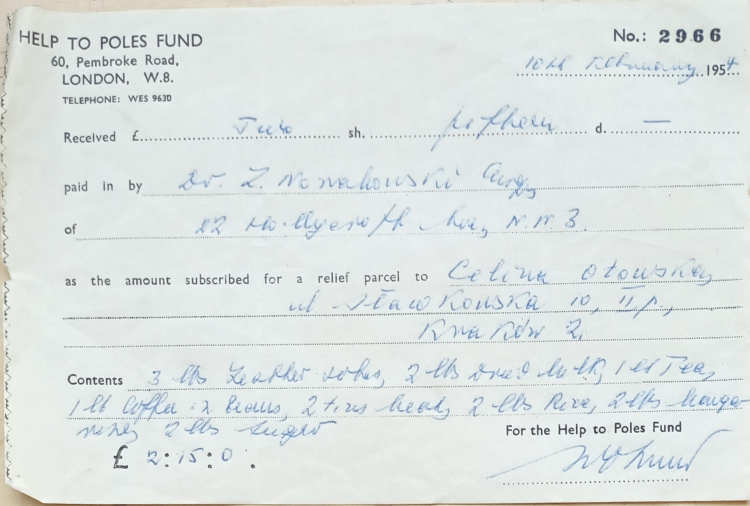 HELP TO POLES FUND
60, Pembroke Road,
LONDON, W.8.
TELEPHONE: WES 9630
No.: 2966
10th February 1954
Received £ Two sh. fifteen d. —
paid in by Dr. Z. Nowakowski
of 22 Hollycroft Ave, N.W.3.
as the amount subscribed for a relief parcel to Celina Otowska,
ul Sławkowska 10, II p.,
Kraków 2,
Contents 3 lbs Leather soles, 2 lbs Dried Milk, 1 lb Tea,
1 lb Coffee in beans, 2 tins meat, 2 lbs Rice, 2 lbs Marga-
rine, 2 lbs sugar
£ 2:15:0.
For the Help to Poles Fund